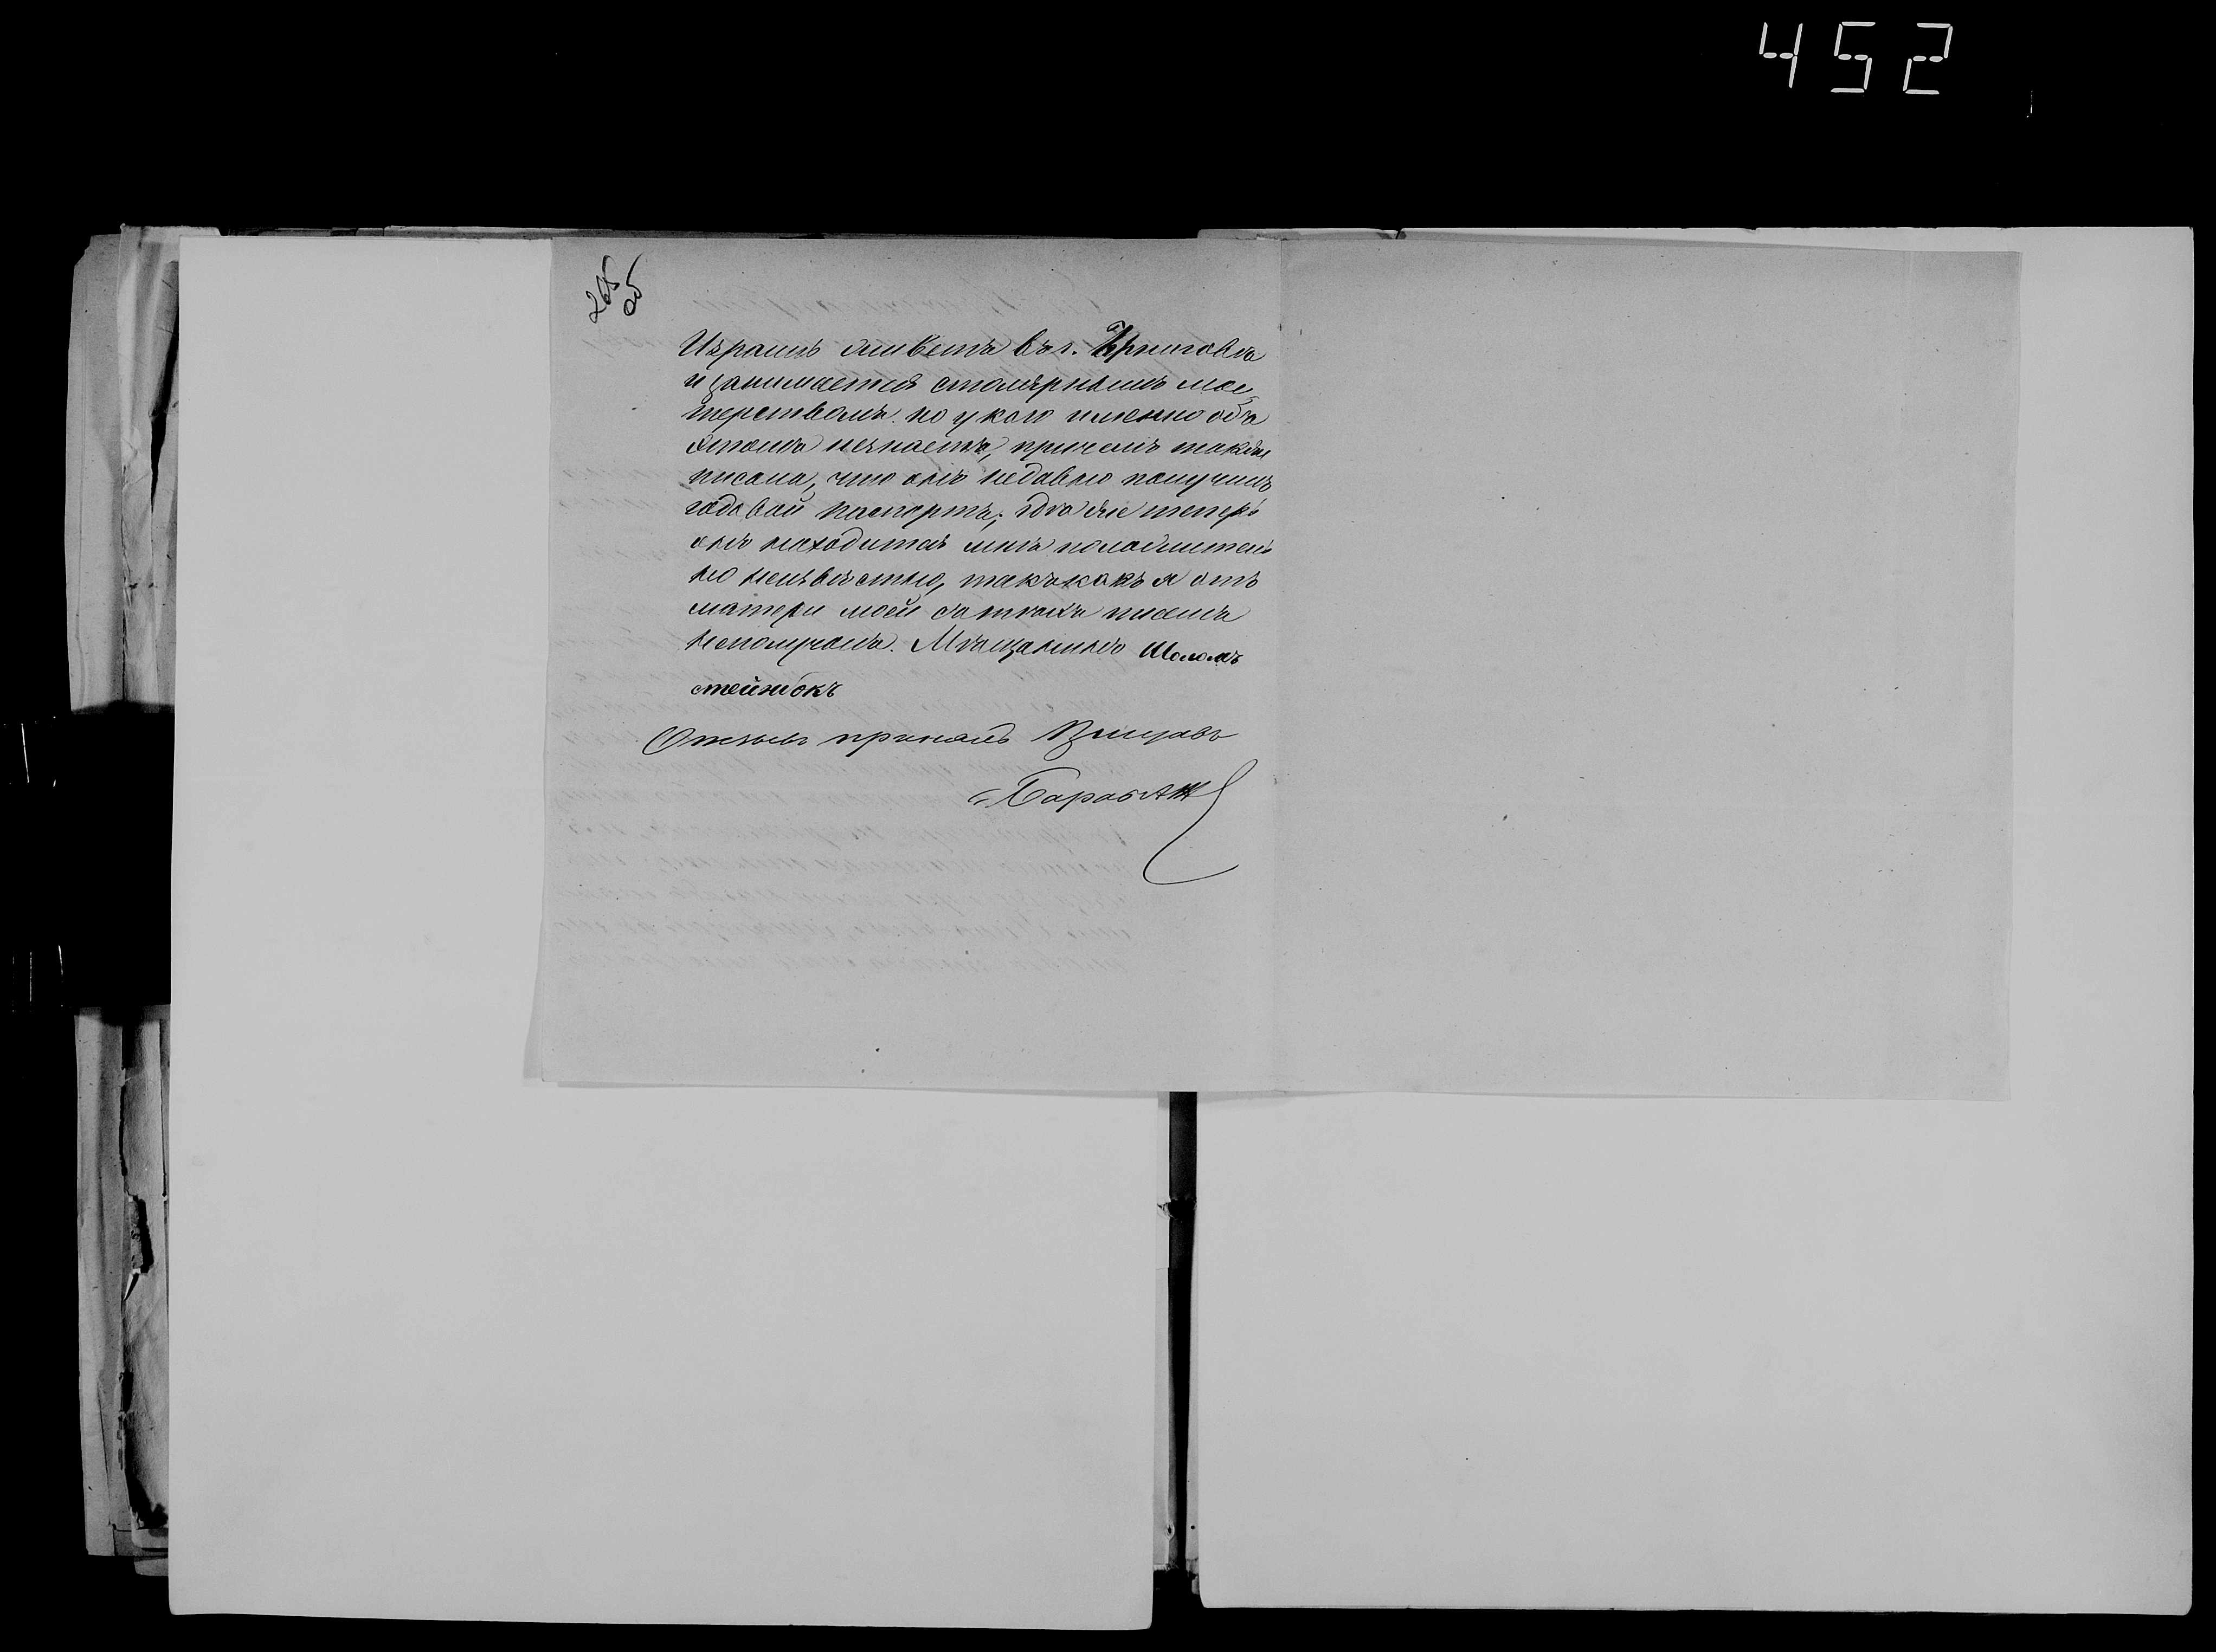 452
265
об
Израиль живетъ въ г. Черниговѣ
и занимается столярнымъ мас
терствомъ но у кого именно объ
этомъ незнаетъ, причемъ также
писала, что онъ недавно получилъ
годовой паспортъ; гдѣ же теперь
онъ находится мнѣ положитель
но неизвѣстно, такъ какъ я отъ
матери моей затѣмъ писемъ
неполучалъ. Мѣщанинъ Шоломъ
стейнбокъ
Отзывъ принялъ